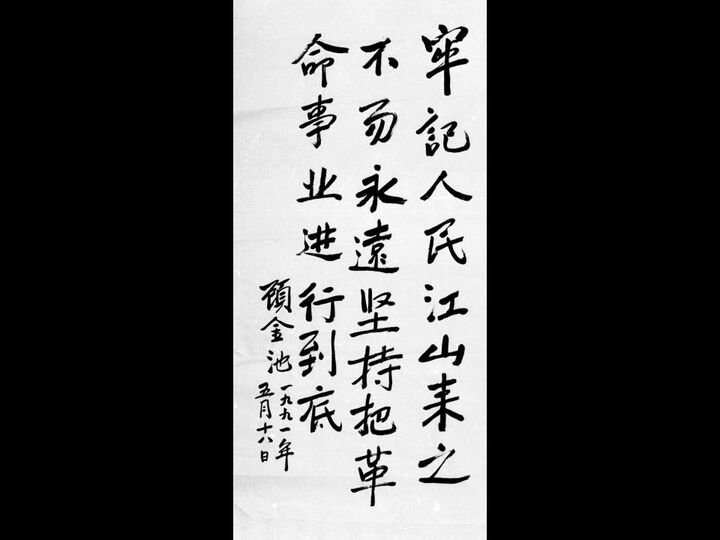 牢記人民江山来之
不易永遠坚持把革
命事业进行到底
顾金池
一九九一年
五月十八日